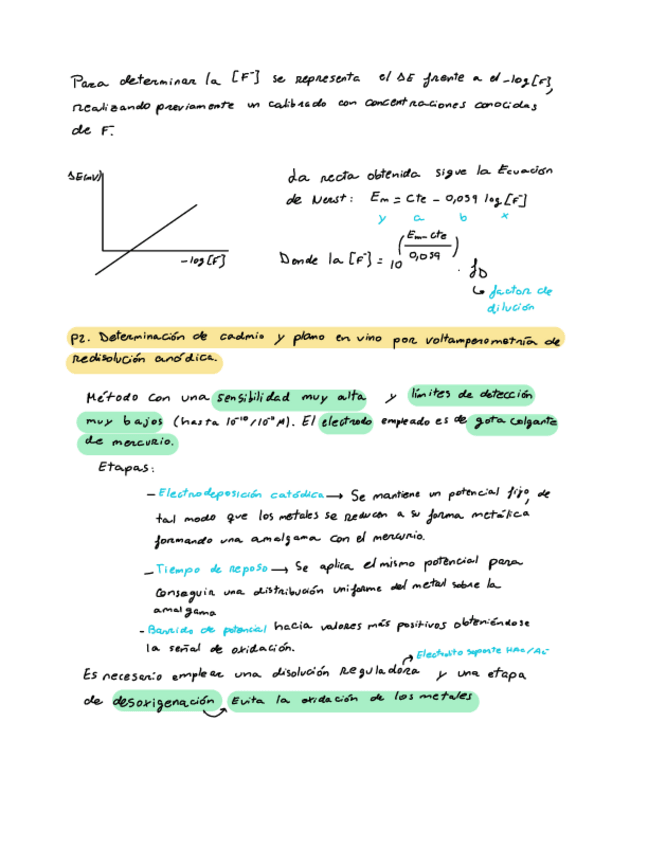 Para determinar la [F⁻] se representa el ΔE frente a el -log[F],
realizando previamente un calibrado con concentraciones conocidas
de F⁻.
ΔE(mV)
-log[F]
La recta obtenida sigue la Ecuación
de Nerst: Em = Cte - 0,059 log[F⁻]
y a b x
Donde la [F⁻] = 10^(Em-cte/0,059) · fD
↳ factor de
dilución
P2. Determinación de cadmio y plomo en vino por voltamperometría de
redisolución anódica.
Método con una sensibilidad muy alta y límites de detección
muy bajos (hasta 10⁻¹⁰/10⁻¹¹M). El electrodo empleado es de gota colgante
de mercurio.
Etapas:
- Electrodeposición catódica → Se mantiene un potencial fijo, de
tal modo que los metales se reducen a su forma metálica
formando una amalgama con el mercurio.
- Tiempo de reposo → Se aplica el mismo potencial para
conseguir una distribución uniforme del metal sobre la
amalgama
- Barrido de potencial hacia valores más positivos obteniéndose
la señal de oxidación.
Electrolito soporte HAc/Ac⁻
Es necesario emplear una disolución reguladora y una etapa
de desoxigenación Evita la oxidación de los metales